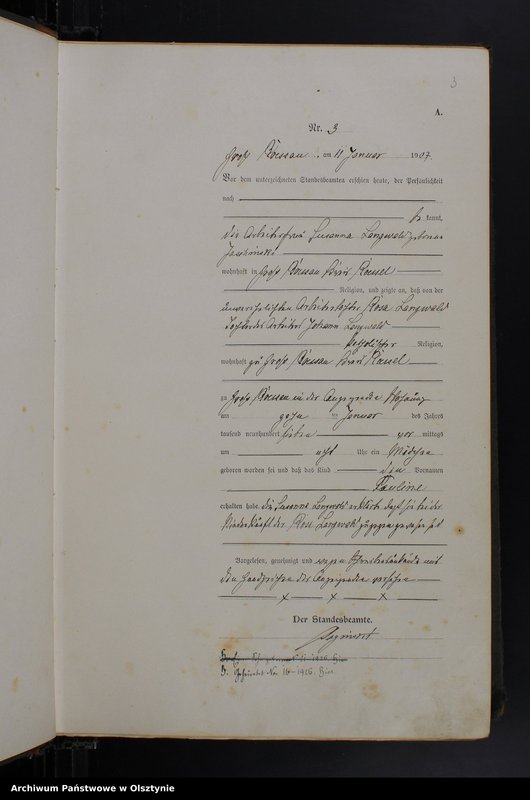 3
A.
Nr. 3
Groß Rössau, am 11 Januar 1907.
Vor dem unterzeichneten Standesbeamten erschien heute, der Persönlichkeit
nach
be kannt,
die Arbeiterfrau Susanna Langwald geborene
wohnhaft in Groß Kreis Rössel
Religion, und zeigte an, daß von der
unverehelichten Arbeitertochter Rosa Langwald
Tochter des Arbeiters Johann Langwald
katholischer Religion,
wohnhaft zu Groß Kreis Rössel
zu Groß in der Wohnung
am im Januar des Jahres
tausend neunhundert sieben vor mittags
um acht Uhr ein Mädchen
geboren worden sei und daß das Kind den Vornamen
Pauline
erhalten habe. Die Susanna erklärte daß sie bei der
Niederkunft der Rosa zugegen gewesen sei
Vorgelesen, genehmigt und wegen mit
dem Handzeichen der versehen
x x x
Der Standesbeamte.
16-1926.
Archiwum Państwowe w Olsztynie